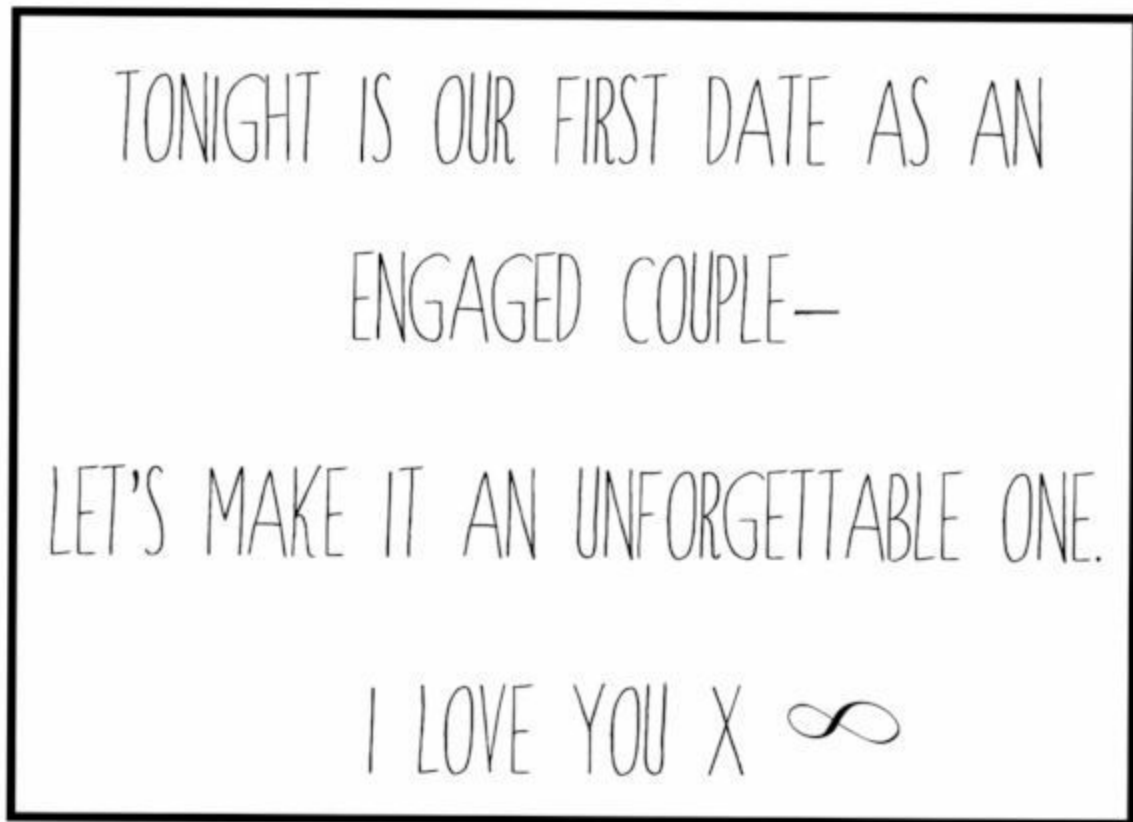 TONIGHT IS OUR FIRST DATE AS AN
ENGAGED COUPLE—
LET'S MAKE IT AN UNFORGETTABLE ONE.
I LOVE YOU X ∞